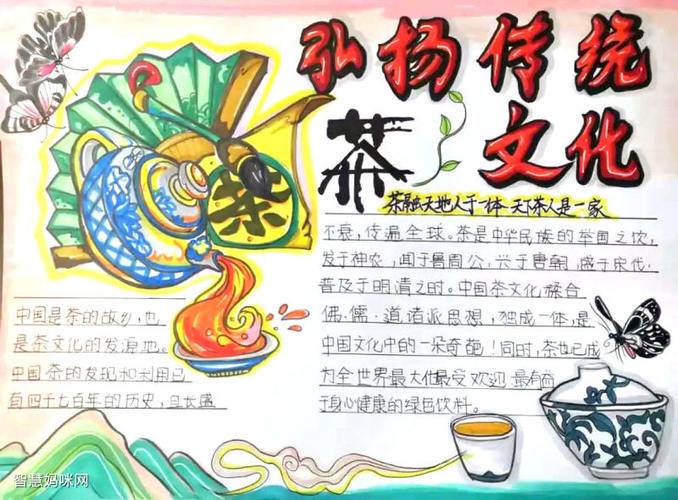 弘扬传统
文化
茶
茶
茶融天地人于一体、天下茶人是一家
中国是茶的故乡,也
是茶文化的发源地。
中国茶的发现和利用已
有四千七百年的历史,且长盛
不衰,传遍全球。茶是中华民族的举国之饮,
发于神农,闻于鲁周公,兴于唐朝,盛于宋代,
普及于明清之时。中国茶文化糅合
佛·儒·道诸派思想,独成一体,是
中国文化中的一朵奇葩!同时,茶也已成
为全世界最大化最受欢迎 最有益
于身心健康的绿色饮料。
智慧妈咪网